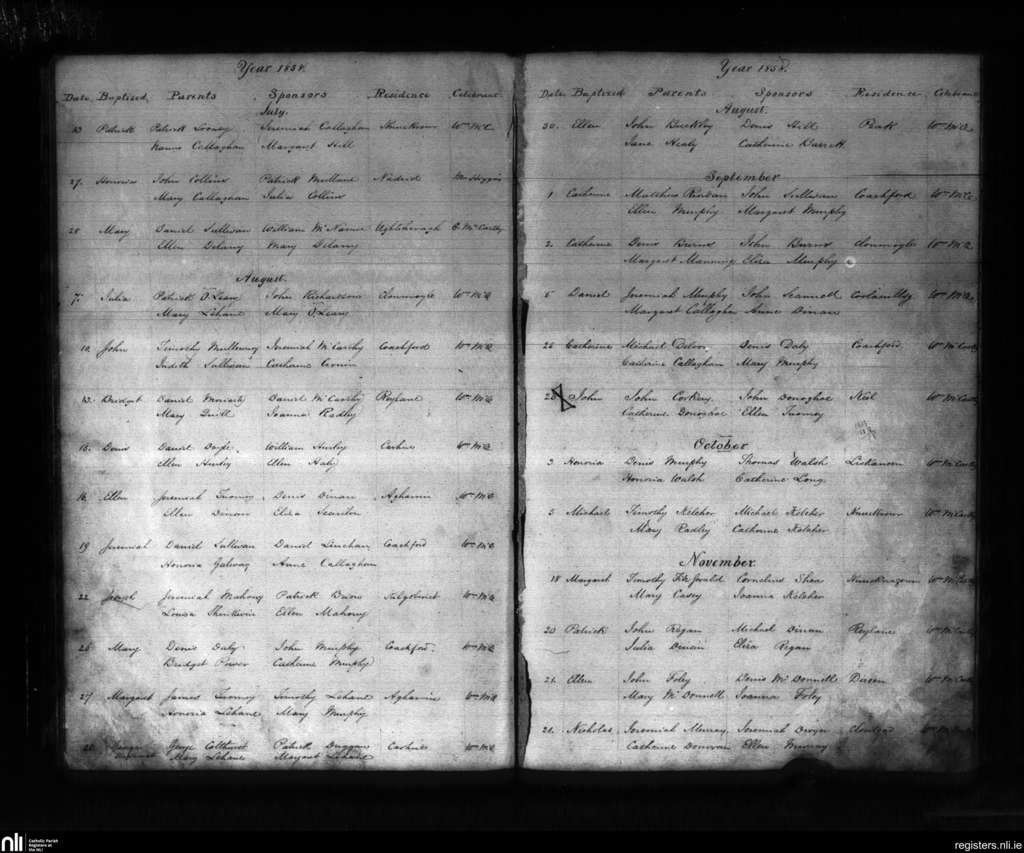 Year 1858.
Date Baptised Parents Sponsors Residence Celebrant
July.
23 Patrick Patrick Looney Jeremiah Callaghan Wm McC
Nanno Callaghan Margaret Hill
27. Honoria John Collins Patrick Mullane Nadrid Mr Higgins
Mary Callaghan Julia Collins
28 Mary Daniel Sullivan William McNamee C McCarthy
Ellen Delany Mary Delany
August.
7. Julia Patrick O'Leary John Richardson Clonmoyle Wm McC
Mary Lehane Mary O'Leary
10. John Timothy Jeremiah McCarthy Coachford Wm McC
Judith Sullivan Catherine Cronin
13. Bridget Daniel Moriarty Daniel McCarthy Rylane Wm McC
Mary Quill Joanna Radley
15. Denis Daniel William Hurley Wm McC
Ellen Hurley Ellen Haly
16. Ellen Jeremiah Twomey Denis Dinan Aghavrin Wm McC
Ellen Dinan Eliza Scanlon
19 Jeremiah Daniel Sullivan Daniel Linehan Coachford Wm McC
Honoria Galwey Anne Callaghan
22 Joseph Jeremiah Mahony Patrick Brien Wm McC
Louisa Ellen Mahony
25 Mary Denis Daly John Murphy Coachford. Wm McC
Bridget Power Catherine Murphy
27 Margaret James Twomey Timothy Lehane Aghavrin Wm McC
Honoria Lehane Mary Murphy
28 George Colthurst Patrick Duggan Wm McC
Mary Lehane Margaret Lehane
Year 1858.
Date Baptised Parents Sponsors Residence Celebrant
August.
30. Ellen John Buckley Denis Hill Peak Wm McC
Jane Healy Catherine Barrett
September
1. Catherine Matthew Riordan John Sullivan Coachford Wm McC
Ellen Murphy Margaret Murphy
2. Catherine Denis Burns John Burns Clonmoyle Wm McC
Margaret Manning Eliza Murphy
5 Daniel Jeremiah Murphy John Scannell Wm McC
Margaret Callaghan Anne Dinan
26 Catherine Michael Denis Daly Coachford Wm McCarthy
Catherine Callaghan Mary Murphy
28 John John Corkery John Donoghoe Wm McCarthy
Catherine Donoghoe Ellen Twomey
October
3. Honoria Denis Murphy Thomas Walsh Wm McCarthy
Honoria Walsh Catherine Long.
5 Michael Timothy Kelcher Michael Kelcher Wm McCarthy
Mary Radley Catherine Kelcher
November.
18 Margaret Timothy Fitz Gerald Cornelius Shea Wm McCarthy
Mary Casey Joanna Kelcher
20 Patrick John Regan Michael Dinan Rylane Wm McCarthy
Julia Dinan Eliza Regan
21. Ellen John Foley Denis McDonnell Wm McCarthy
Mary McDonnell Joanna Foley
21. Nicholas Jeremiah Murray Jeremiah Dwyer
Catherine Donovan Ellen Murray
nli Catholic Parish
Registers at
the NLI
registers.nli.ie